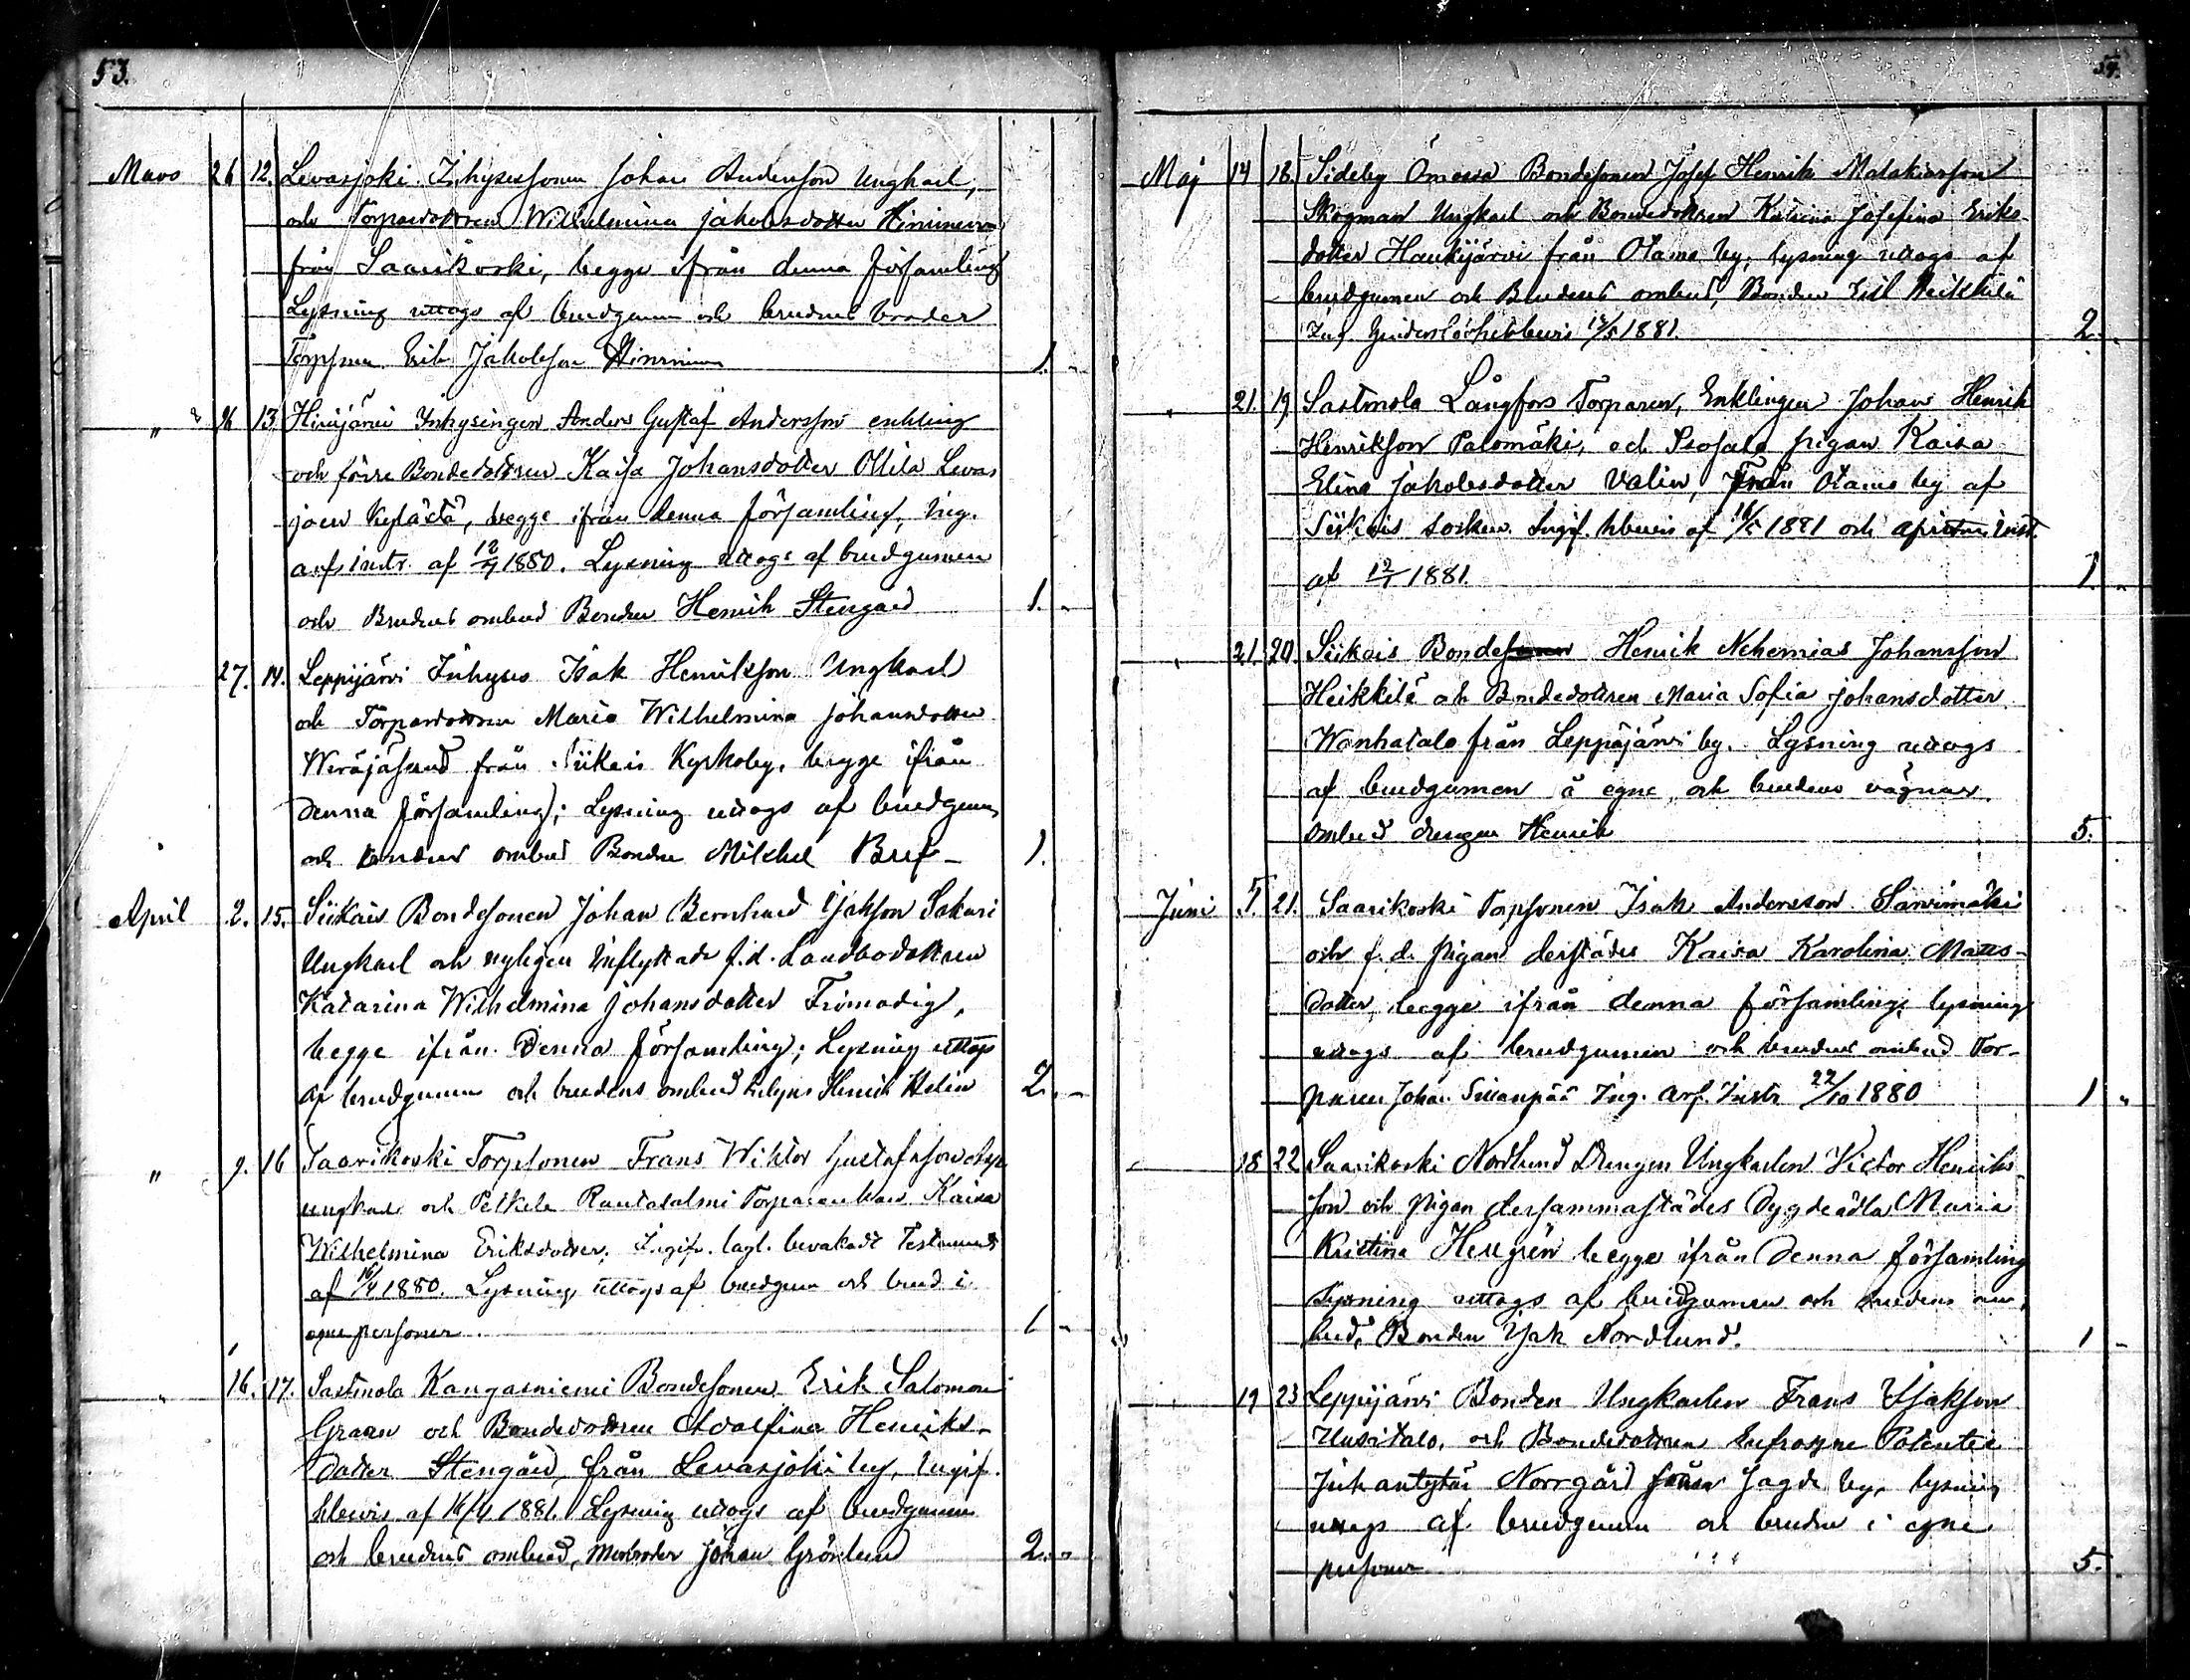 53.
Mars 26 12. Levasjoki Inhysessonen Johan Andersson Ungkarl,
och Torparedottren Wilhelmina Jakobsdotter Hinninen
från Saarikoski, begge ifrån denna församling
Lysning uttogs af brudgumen och brudens broder
Torpsonen Erik Jakobsson Hinninen 1. "
" 26 13 Hirvijärvi Inhysingen Anders Gustaf Andersson enkling
och förre Bondedottren Kaisa Johansdotter Ollila Levas
joen kylästä, begge ifrån denna församling, Ing.
arfsinstr. af 12/4 1880. Lysning uttogs af brudgumen
och Brudens ombud Bonden Henrik Stengård 1. "
27. 14. Leppijärvi Inhyses Isak Henriksson Ungkarl
och Torparedottren Maria Wilhelmina Johansdotter
från Siikais Kyrkoby, begge ifrån
denna församling; Lysning uttogs af brudgumen
och brudens ombud Bonden Mikkel Bref 1.
April 2. 15. Siikais Bondesonen Johan Bernhard Isaksson Sakari
Ungkarl och nyligen inflyttade f.d. Landbodottren
Katarina Wilhelmina Johansdotter Frimodig,
begge ifrån Denna församling; Lysning uttogs
af brudgumen och brudens ombud Henrik Helin 2. "
" 9. 16 Saarikoski Torpsonen Frans Wiktor Gustafsson
ungkarl och Petkele Rantasalmi Torpareenkan Kaisa
Wilhelmina Eriksdotter. Ingifv. lagl. bevakadt Testamente
af 1880. Lysning uttogs af brudgum och brud i
egne personer 1 "
" 16. 17. Sastmola Kangasniemi Bondesonen Erik Salomon
Graan och Bondedottren Adolfina Henriks-
dotter Stengård, från Levasjoki by, Ingif.
hbevis af 16/4 1881. Lysning uttogs af brudgumen
och brudens ombud, Morbroder Johan Grönlund 2. "
54.
Maj 14 18. Sideby Ömossa Bondesonen Josef Henrik Malakiasson
Skogman Ungkarl och Bondedottren Katrina Josefina Eriks
dotter Haukijärvi från Otamo by, lysning uttogs af
brudgumen och Brudens ombud, Bonden Heikkilä
Ing. hinderslöshetsbevis 13/5 1881. 2. "
" 21. 19 Sastmola Långfors Torparen, Enklingen Johan Henrik
Henriksson Palomäki, och pigan Kaisa
Elina Jakobsdotter Valin, från Otamo by af
Siikais socken. Ingif. hbevis af 1881 och inst.
af 12/1 1881. 1. "
" 21. 20. Siikais Bonden Henrik Nehemias Johansson
Heikkilä och Bondedottren Maria Sofia Johansdotter
Wanhatalo från Leppäjärvi by. Lysning uttogs
af brudgumen å egne och brudens vägnar.
ombud drengen Henrik 5.
Juni 5. 21. Saarikoski Torpsonen Isak Andersson Sarvimäki
och f. d. pigan derstädes Kaisa Karolina Matts-
dotter, begge ifrån denna församling; lysning
uttogs af brudgumen och brudens ombud Tor-
paren Johan Siwanpää Ing. Arf. Instr 22/10 1880 1 "
18 22 Saarikoski Nordlund Drengen Ungkarlen Victor Henriks
son och pigan dersammastädes Dygdeädla Maria
Kristina Hellgrén begge ifrån Denna församling
Lysning uttogs af brudgumen och brudens om-
bud, Bonden Isak Nordlund. 1 "
" 19 23 Leppijärvi Bonden Ungkarlen Frans Isaksson
Uusitalo, och Bondedottren Eufrosyne Potentia
Juhantytär Norrgård från by, lysning
uttogs af brudgumen och bruden i egne
personer 5.